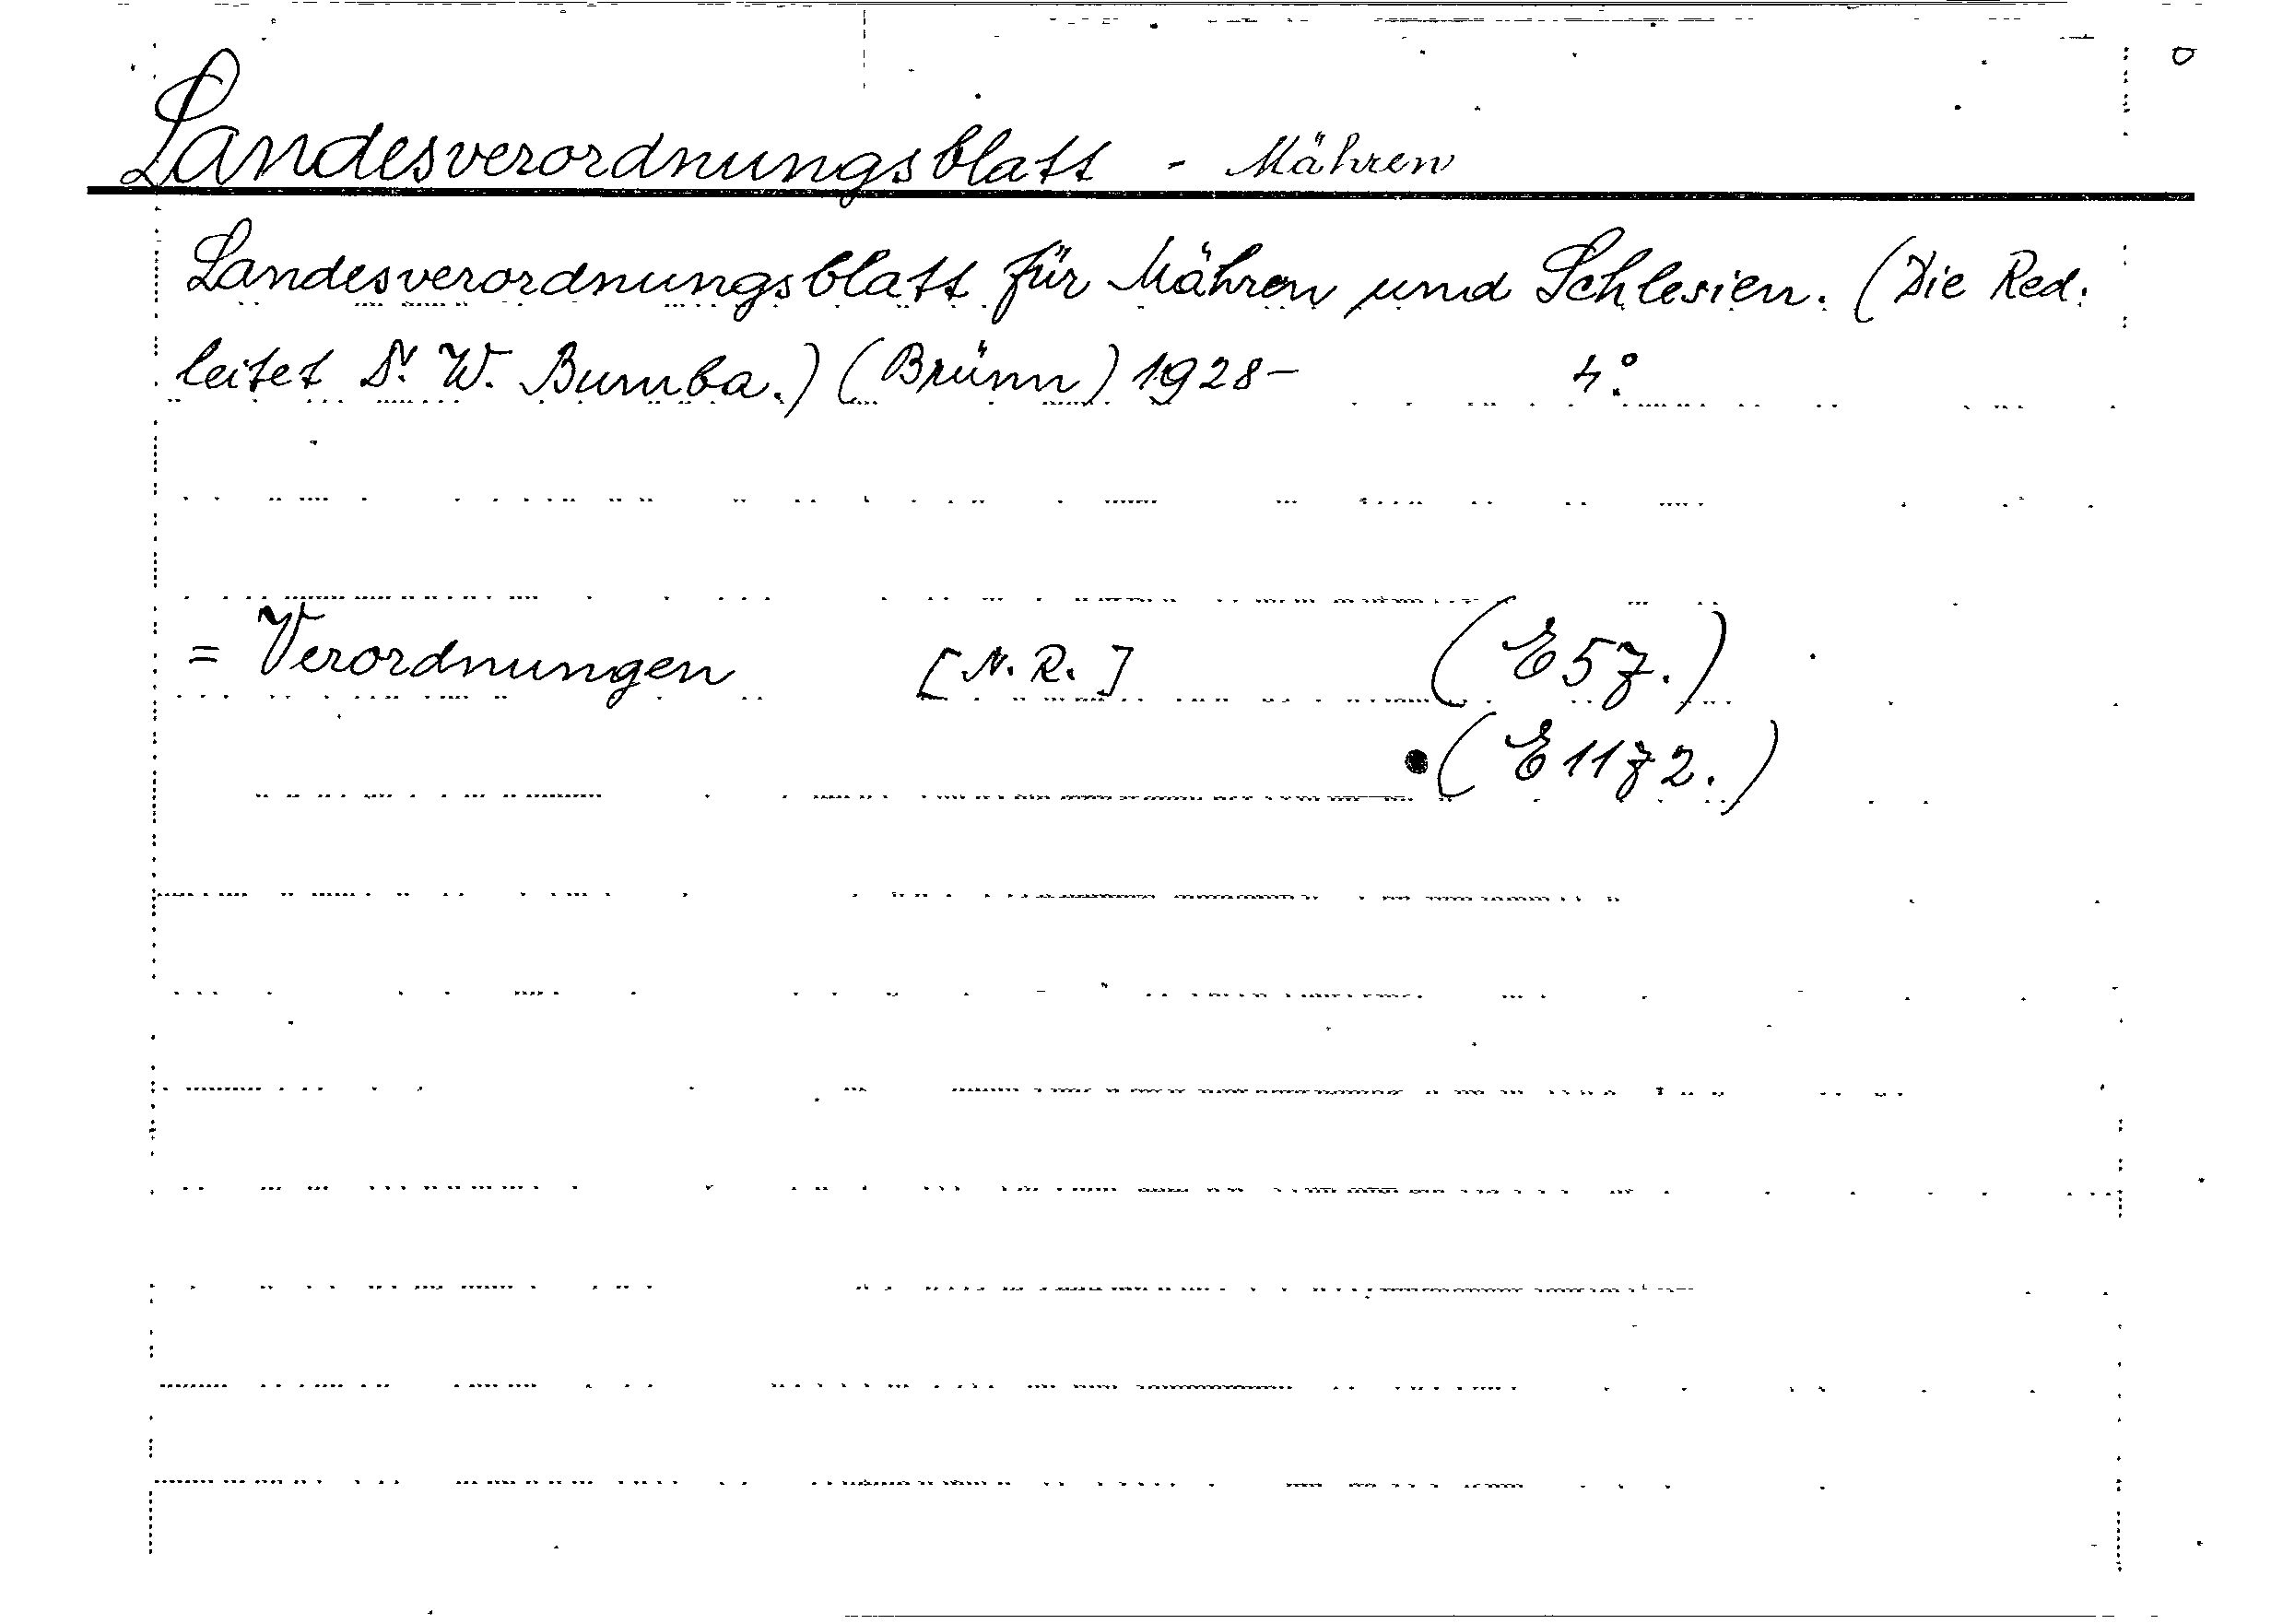 Landesverordnungsblatt - Mähren
Landesverordnungsblatt für Mähren und Schlesien. (Die Red.
leitet Dr. W. Bumba.) (Brünn) 1928- 4°.
= Verordnungen [N. R.] (E 57.)
(E 1172.)